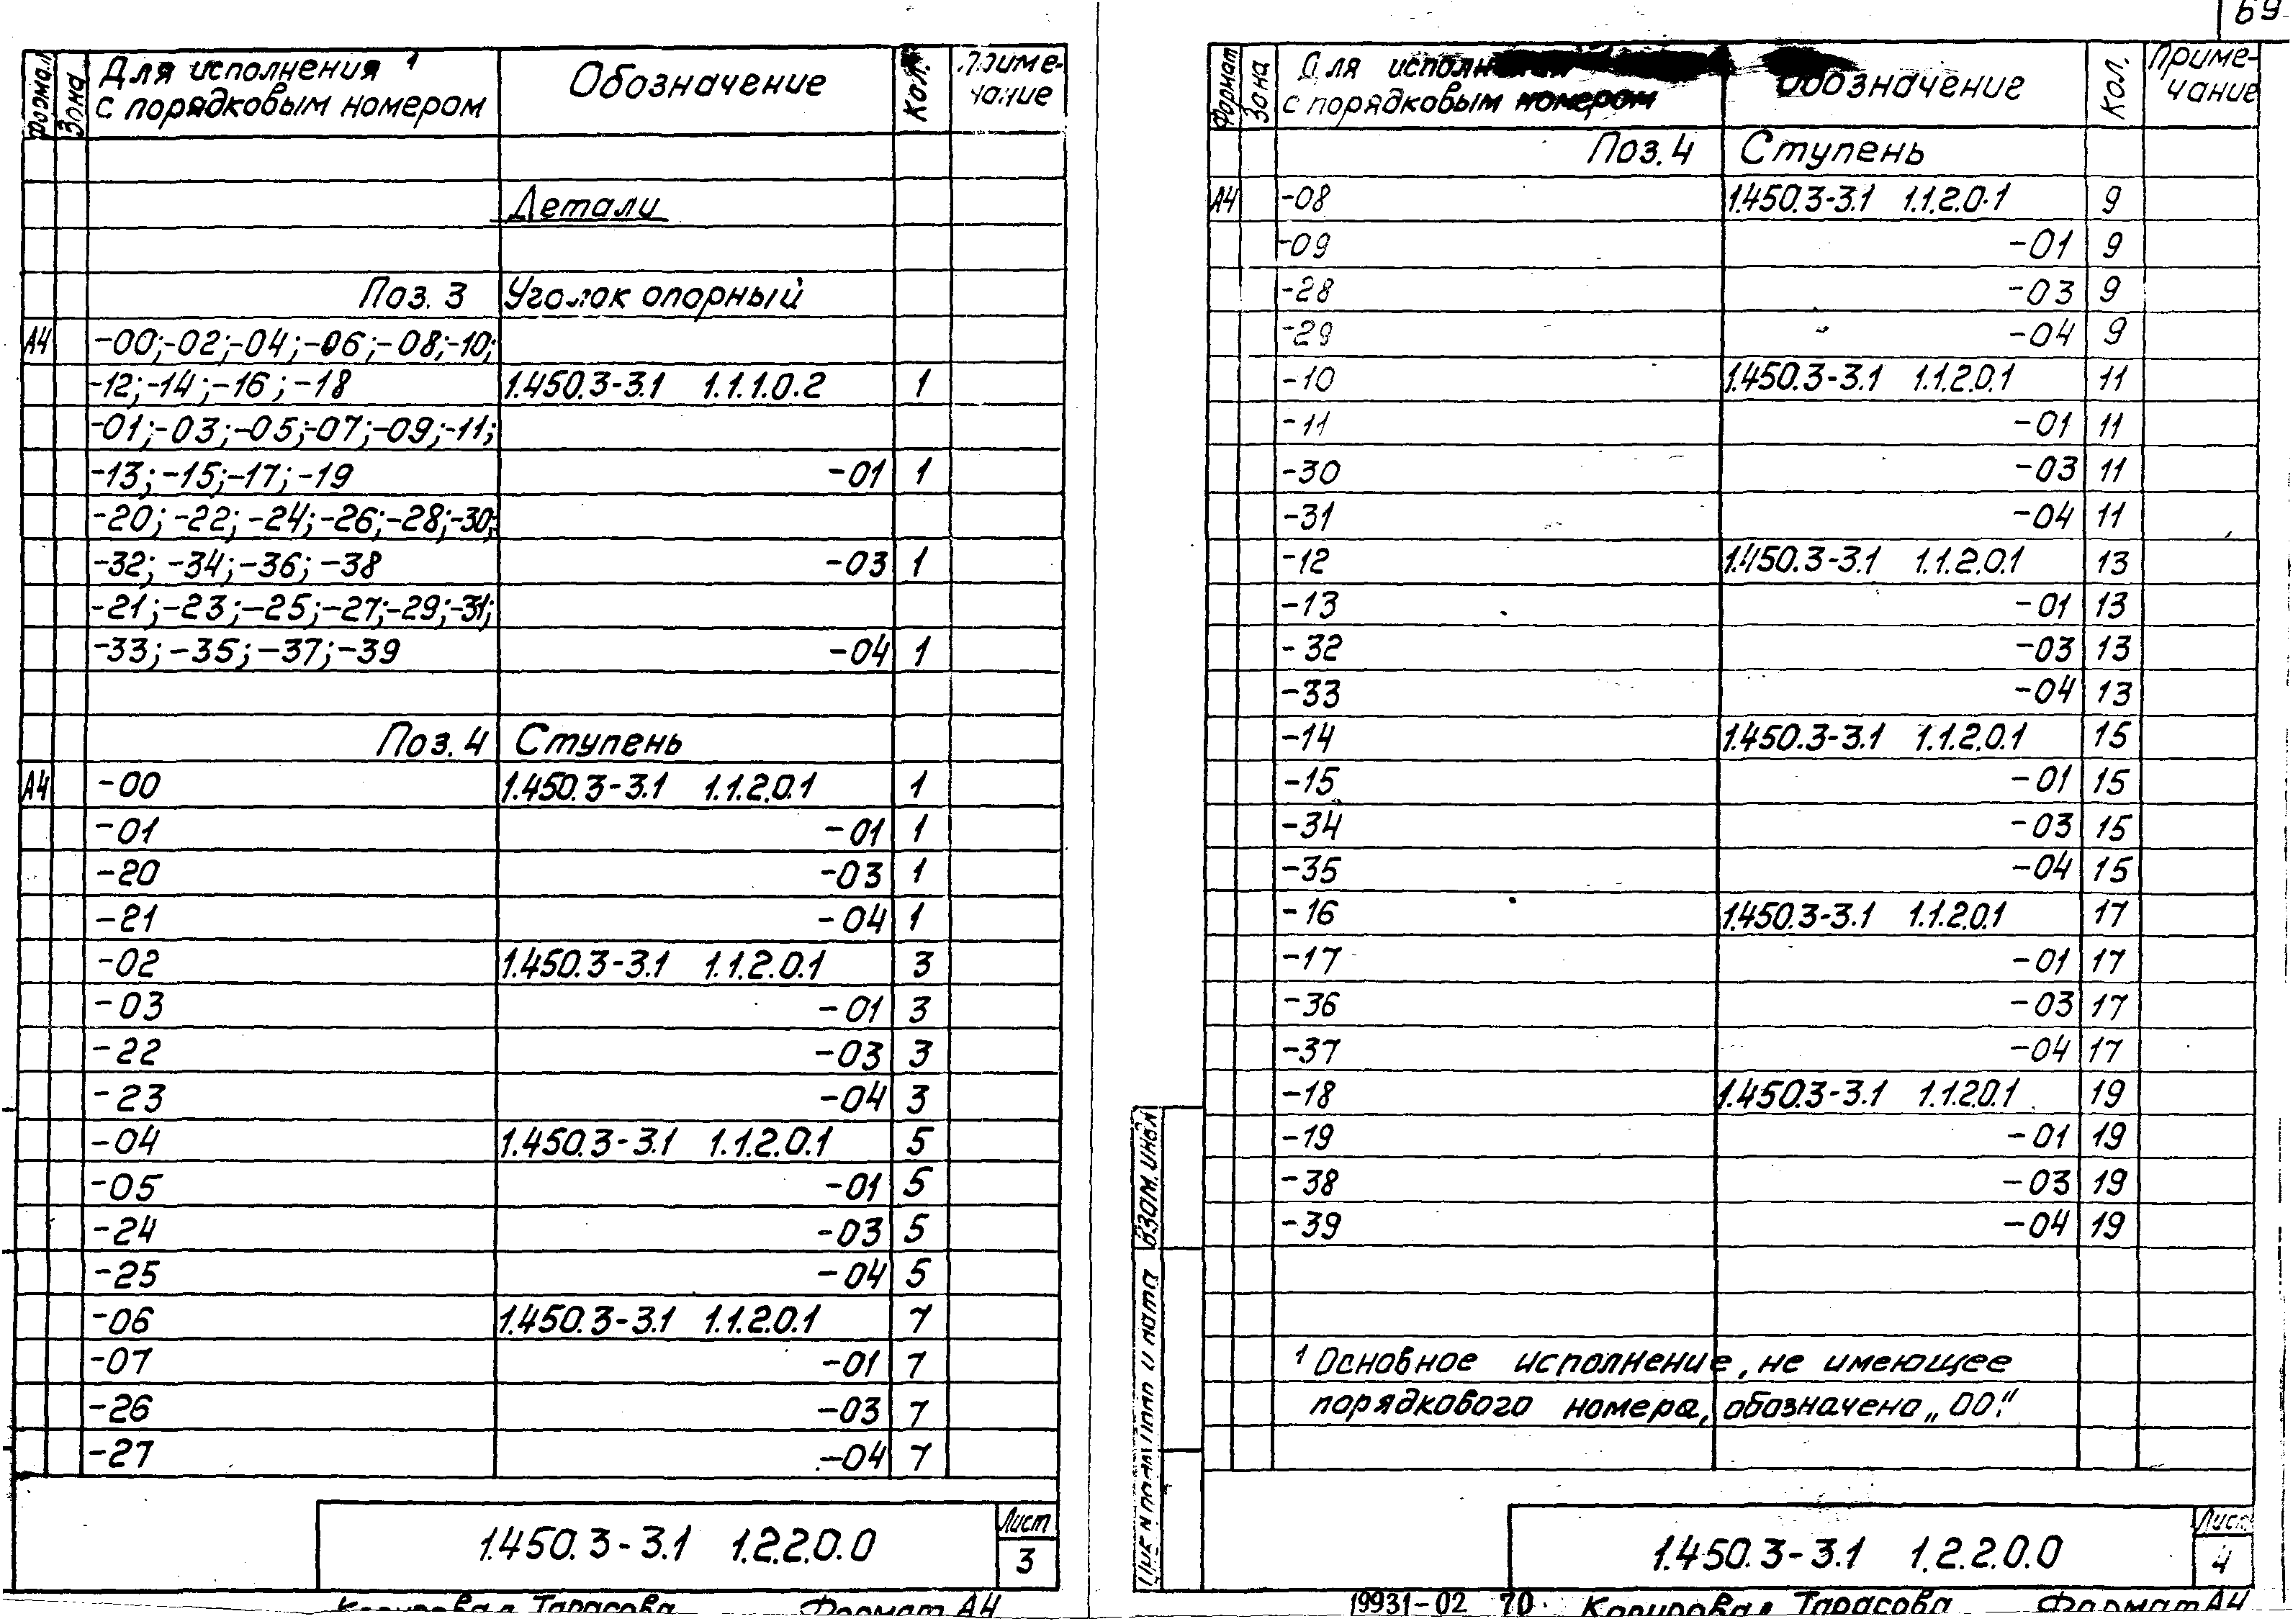 Формат Зона Для исполнения 1 с порядковым номером Обозначение Кол. Примечание
Детали
Поз. 3 Уголок опорный
А4 -00;-02;-04;-06;-08;-10;
-12;-14;-16;-18 1.450.3-3.1 1.1.1.0.2 1
-01;-03;-05;-07;-09;-11;
-13;-15;-17;-19 -01 1
-20;-22;-24;-26;-28;-30;
-32;-34;-36;-38 -03 1
-21;-23;-25;-27;-29;-31;
-33;-35;-37;-39 -04 1
Поз. 4 Ступень
А4 -00 1.450.3-3.1 1.1.2.0.1 1
-01 -01 1
-20 -03 1
-21 -04 1
-02 1.450.3-3.1 1.1.2.0.1 3
-03 -01 3
-22 -03 3
-23 -04 3
-04 1.450.3-3.1 1.1.2.0.1 5
-05 -01 5
-24 -03 5
-25 -04 5
-06 1.450.3-3.1 1.1.2.0.1 7
-07 -01 7
-26 -03 7
-27 -04 7
1.450.3-3.1 1.2.2.0.0 Лист 3
Копировал Тарасова Формат А4
69
Формат Зона Для исполнения с порядковым номером Обозначение Кол. Примечание
Поз. 4 Ступень
А4 -08 1.450.3-3.1 1.1.2.0.1 9
-09 -01 9
-28 -03 9
-29 -04 9
-10 1.450.3-3.1 1.1.2.0.1 11
-11 -01 11
-30 -03 11
-31 -04 11
-12 1.450.3-3.1 1.1.2.0.1 13
-13 -01 13
-32 -03 13
-33 -04 13
-14 1.450.3-3.1 1.1.2.0.1 15
-15 -01 15
-34 -03 15
-35 -04 15
-16 1.450.3-3.1 1.1.2.0.1 17
-17 -01 17
-36 -03 17
-37 -04 17
-18 1.450.3-3.1 1.1.2.0.1 19
-19 -01 19
-38 -03 19
-39 -04 19
1 Основное исполнение, не имеющее
порядкового номера, обозначено „00."
Взам. инв. №
1.450.3-3.1 1.2.2.0.0 Лист 4
19931-02 70 Копировал Тарасова Формат А4